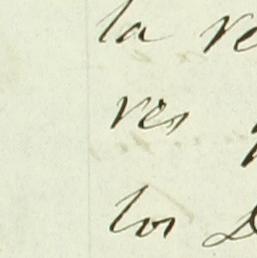 la re
res
los D